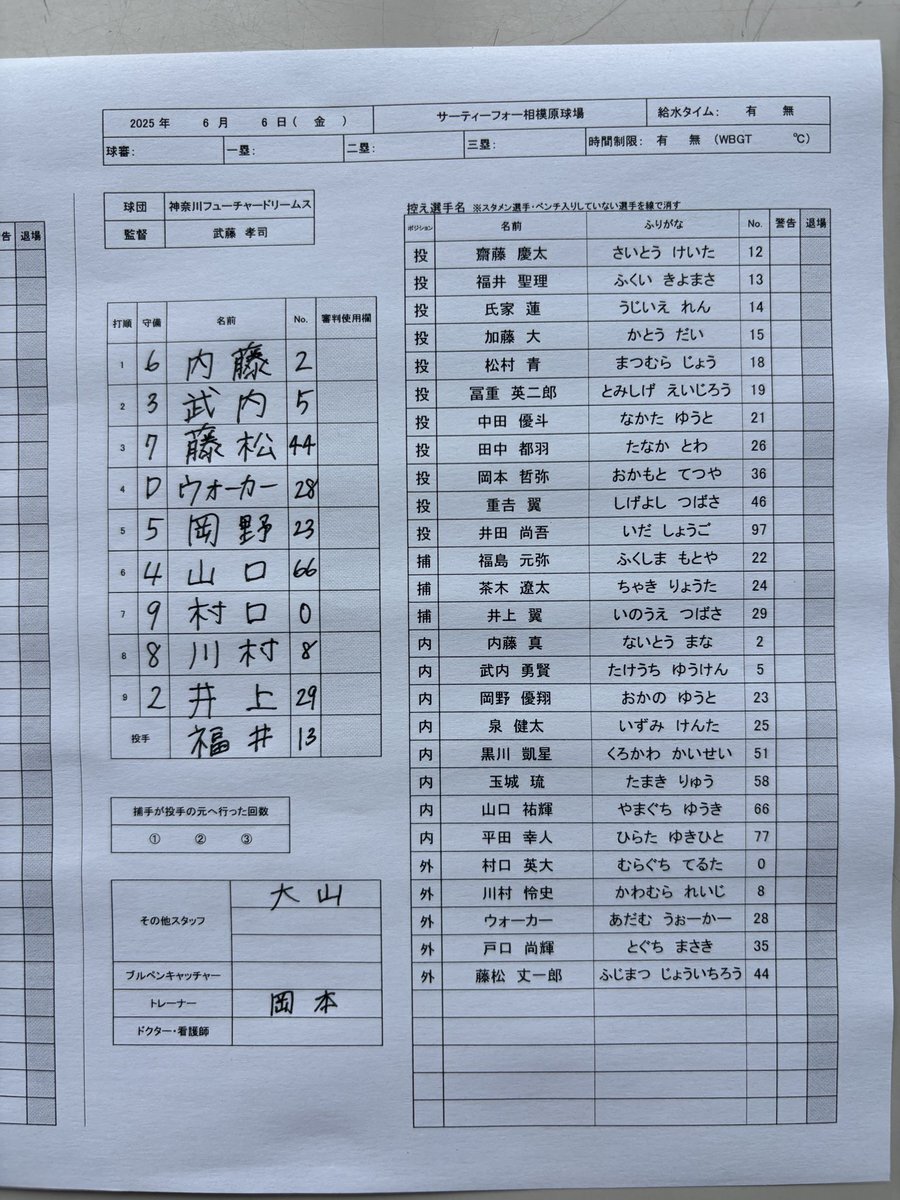 2025 年 6 月 6 日 ( 金 ) サーティーフォー相模原球場 給水タイム: 有 無
球審: 一塁: 二塁: 三塁: 時間制限: 有 無 (WBGT ℃)
告 退場
球団 神奈川フューチャードリームス
監督 武藤 孝司
打順 守備 名前 No. 審判使用欄
1 6 内藤 2
2 3 武内 5
3 7 藤松 44
4 D ウォーカー 28
5 5 岡野 23
6 4 山口 66
7 9 村口 0
8 8 川村 8
9 2 井上 29
投手 福井 13
捕手が投手の元へ行った回数
① ② ③
その他スタッフ 大山
ブルペンキャッチャー
トレーナー 岡本
ドクター・看護師
控え選手名 ※スタメン選手・ベンチ入りしていない選手を線で消す
ポジション 名前 ふりがな No. 警告 退場
投 齋藤 慶太 さいとう けいた 12
投 福井 聖理 ふくい きよまさ 13
投 氏家 蓮 うじいえ れん 14
投 加藤 大 かとう だい 15
投 松村 青 まつむら じょう 18
投 冨重 英二郎 とみしげ えいじろう 19
投 中田 優斗 なかた ゆうと 21
投 田中 都羽 たなか とわ 26
投 岡本 哲弥 おかもと てつや 36
投 重𠮷 翼 しげよし つばさ 46
投 井田 尚吾 いだ しょうご 97
捕 福島 元弥 ふくしま もとや 22
捕 茶木 遼太 ちゃき りょうた 24
捕 井上 翼 いのうえ つばさ 29
内 内藤 真 ないとう まな 2
内 武内 勇賢 たけうち ゆうけん 5
内 岡野 優翔 おかの ゆうと 23
内 泉 健太 いずみ けんた 25
内 黒川 凱星 くろかわ かいせい 51
内 玉城 琉 たまき りゅう 58
内 山口 祐輝 やまぐち ゆうき 66
内 平田 幸人 ひらた ゆきひと 77
外 村口 英大 むらぐち てるた 0
外 川村 怜史 かわむら れいじ 8
外 ウォーカー あだむ うぉーかー 28
外 戸口 尚輝 とぐち まさき 35
外 藤松 丈一郎 ふじまつ じょういちろう 44